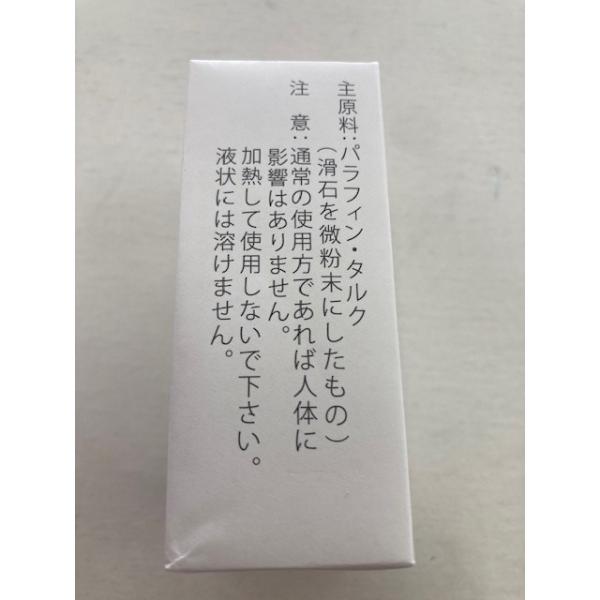 主原料：パラフィン・タルク
（滑石を微粉末にしたもの）
注　意：通常の使用方であれば人体に
影響はありません。
加熱して使用しないで下さい。
液状には溶けません。